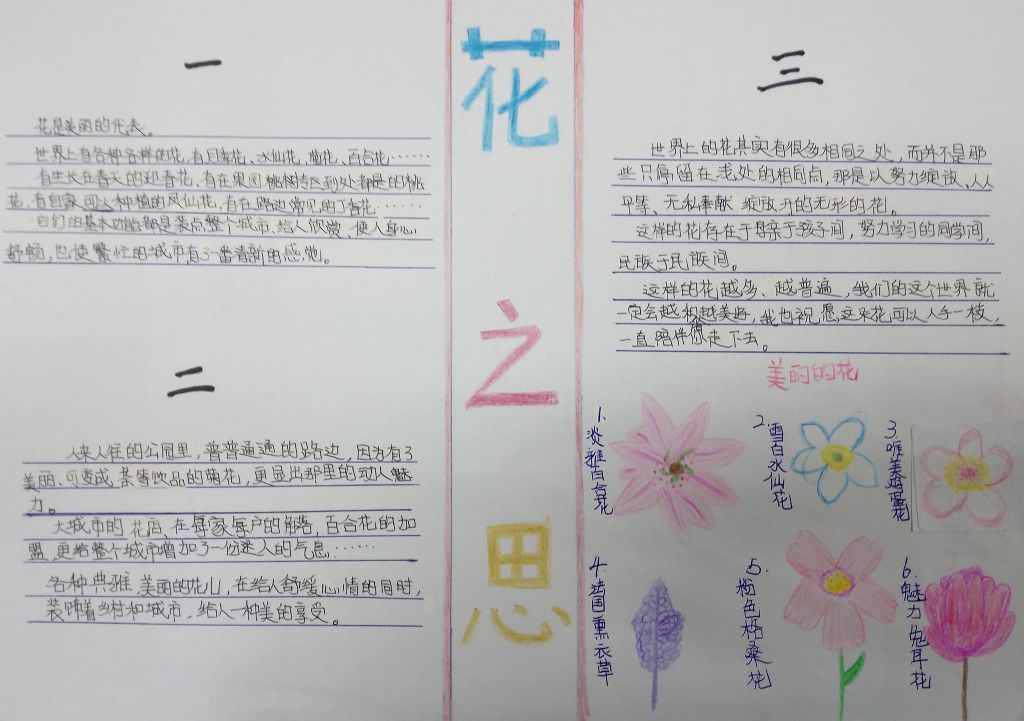 花之思
一
花是美丽的代表。
世界上有各种各样的花,有月季花、水仙花、菊花、百合花……
有生长在春天的迎春花,有在果园桃树专区到处都是的桃
花,有自家四人种植的凤仙花,有在路边常见的丁香花……
它们的基本功能都是装点整个城市,给人欣赏,使人身心
舒畅,也使繁忙的城市有了一番清新的感觉。
二
人来人往的公园里,普普通通的路边,因为有了
美丽、可变成茶等饮品的菊花,更显出那里的动人魅
力。
大城市的花店、在每家每户的角落,百合花的加
盟,更给整个城市增加了一份迷人的气息……
各种典雅、美丽的花儿,在给人舒缓心情的同时,
装饰着乡村和城市,给人一种美的享受。
三
世界上的花其实有很多相同之处,而并不是那
些只停留在浅处的相同点,那是以努力绽放、人人
平等、无私奉献绽放开的无形的花。
这样的花存在于母亲于孩子间,努力学习的同学间,
民族于民族间。
这样的花越多、越普遍,我们的这个世界就
一定会越和越美好,我也祝愿这朵花可以人手一枝,
一直陪伴你走下去。
美丽的花
1.淡雅百合花
2.雪白水仙花
3.唯美鸡蛋花
4.法国熏衣草
5.粉色格桑花
6.魅力兔耳花